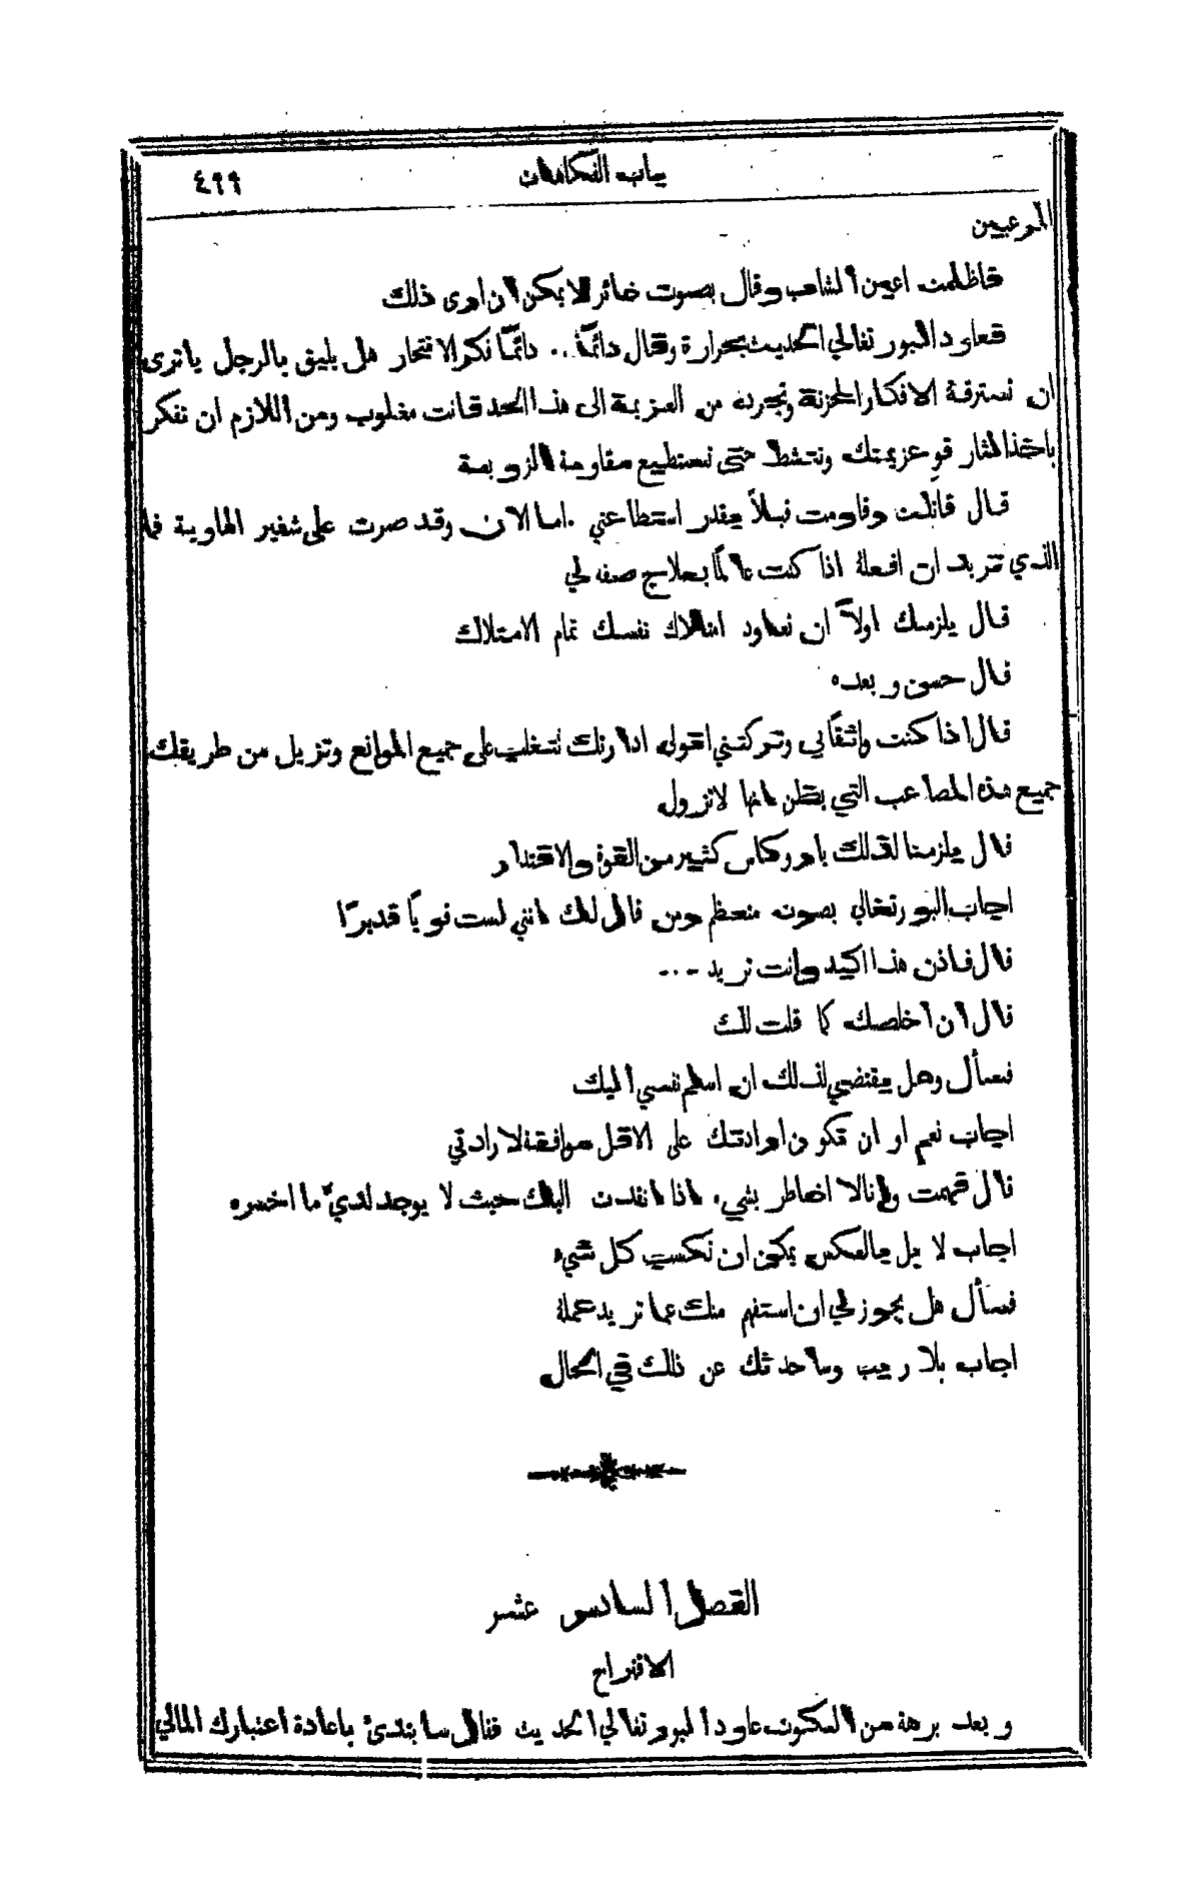 باب الفكاهات ٤٩٩
المرعبين
فاظلمت اعين الشاب وقال بصوت خائر لا يمكن ان ارى ذلك
فعاود البورتغالي الحديث بحرارة وقال دائمًا .. دائمًا نكر الانتحار هل يليق بالرجل يا ترى
ان تسترقهُ الافكار المحزنة وتجرده من العزيمة الى هذا الحد فانت مغلوب ومن اللازم ان تفكر
باخذ الثار قوِ عزيمتك وتنشط حتى تستطيع مقاومة الزوبعة
قال قاتلت وقاومت قبلاً بقدر استطاعتي . اما الان وقد صرت على شفير الهاوية فما
الذي تريد ان افعلهُ اذا كنت عالمًا بعلاج صفه لي
قال يلزمك اولاً ان تعاود امتلاك نفسك تمام الامتلاك
قال حسن وبعده
قال اذا كنت واثقًا بي وتركتني اقوله ادارتك لتتغلب على جميع الموانع وتزيل من طريقك
جميع هذه المصاعب التي يظن انها لا تزول
قال يلزمنا لذلك يا مركاس كثير من القوة والاقتدار
اجاب البورتغالي بصوت متعظم ومن قال لك انني لست قويًا قديرًا
قال فاذن هذا اكيد وانت تريد ...
قال ان اخلصك كما قلت لك
فسأل وهل يقتضي لذلك ان اسلم نفسي اليك
اجاب نعم او ان تكون ارادتك على الاقل موافقة لارادتي
قال فهمت وانا لا اخاطر بشيء اذا انقدت اليك حيث لا يوجد لديَّ ما اخسره
اجاب لا بل بالعكس يمكن ان تكسب كل شيء
فسأل هل يجوز لي ان استفهم منك عما تريد عملهُ
اجاب بلا ريب وساحدثك عن ذلك في الحال
الفصل السادس عشر
الاقتراح
وبعد برهة من السكوت عاود البورتغالي الحديث فقال سابتدئ باعادة اعتبارك المالي